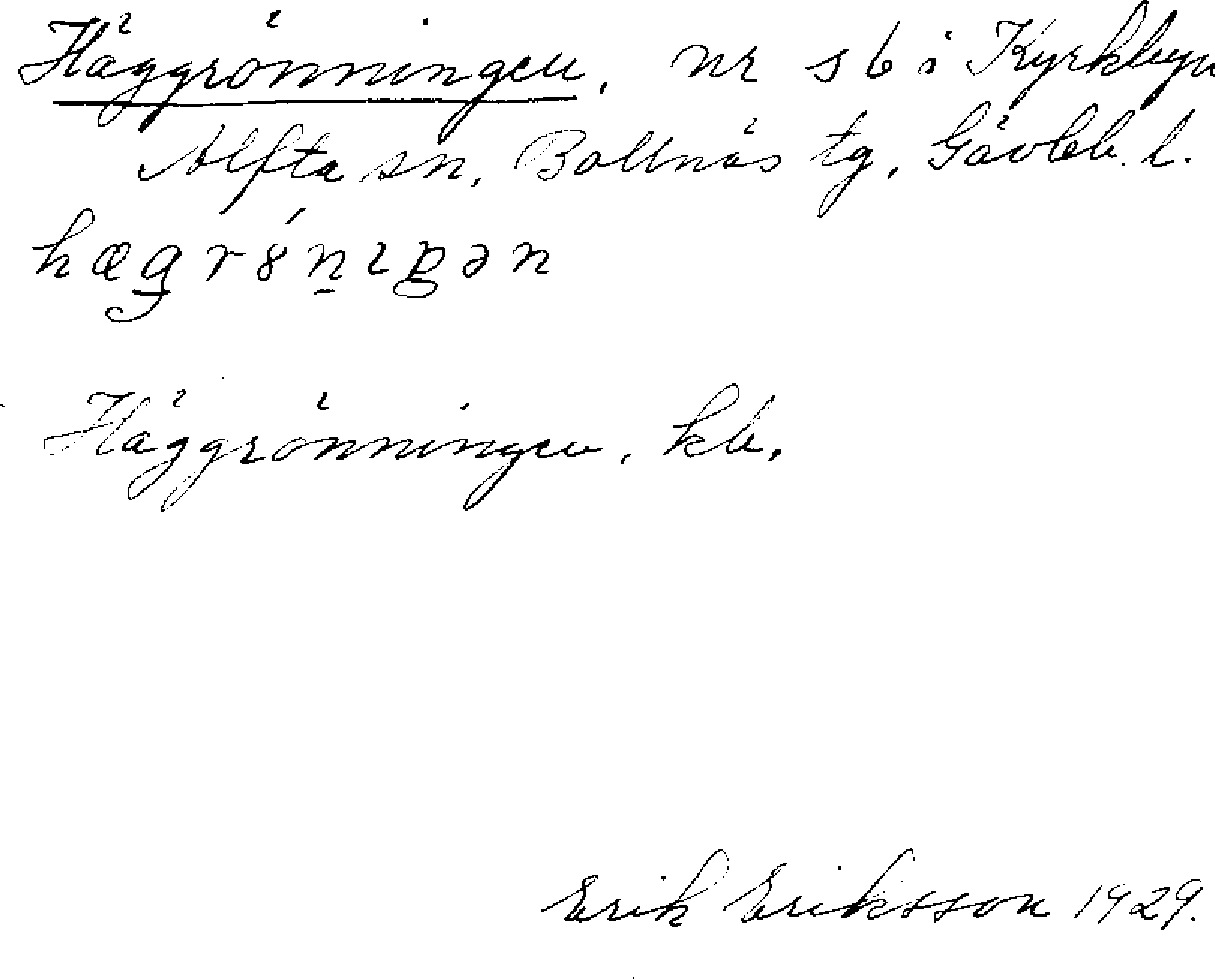 Häggrönningen, nr s 6 i Kyrkbyn
Alfta sn, Bollnäs tg, Gävleb. l.
Häggrönningen, kb.
Erik Eriksson 1929.